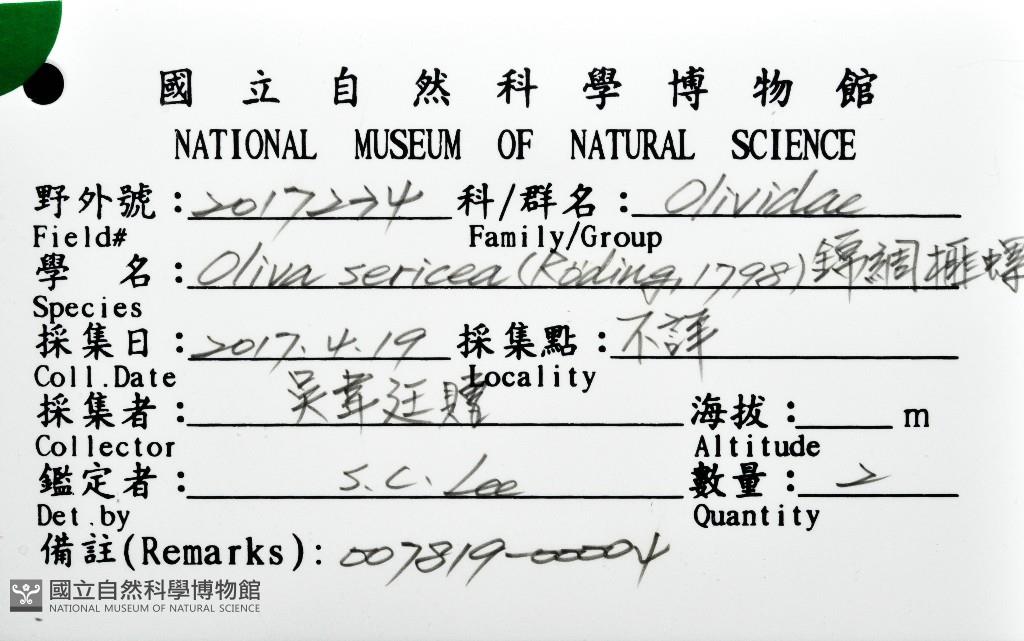 國立自然科學博物館
NATIONAL MUSEUM OF NATURAL SCIENCE
野外號:2017224 科/群名:Olividae
Field# Family/Group
學名:Oliva sericea (Röding, 1798) 錦綢榧螺
Species
採集日:2017.4.19 採集點:不詳
Coll.Date Locality
採集者:吳葦廷贈 海拔: m
Collector Altitude
鑑定者:S.C. Lee 數量:2
Det.by Quantity
備註(Remarks):007819-00004
國立自然科學博物館
NATIONAL MUSEUM OF NATURAL SCIENCE